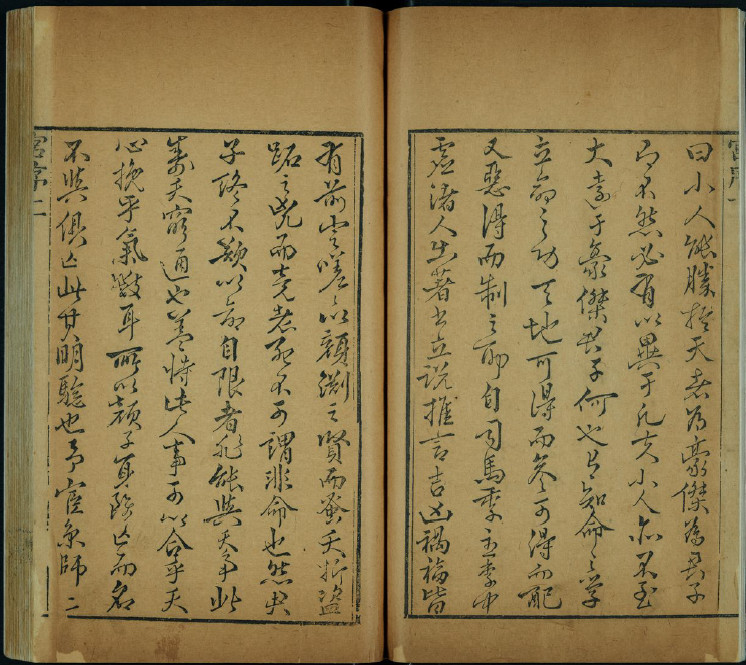 曰小人能勝於天者為豪傑為君子
不然必有以異于凡夫小人亦不至
大遠于豪傑君子何也知命之學
立命之功天地可得而參可得而配
又惡得而制之耶自司馬季主李中
虛諸人出著書立說推言吉凶禍福皆
有前定嗟嗟以顏淵之賢而蚤夭折盜
跖之兇而竟老死不可謂非命也然君
子終不欲以命自限者非能與天爭此
壽夭窮通也葢恃此人事可以合乎天
心挽乎氣數耳所以顏子身雖亡而名
不與俱亡此其明驗也予宦京師 二
序二